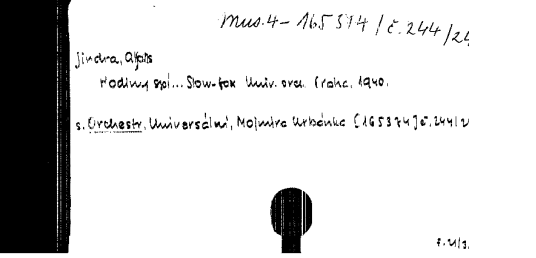 Mus.4-165374/č.244/24
Jindra, Alfons
Hodiny spí... Slow-fox Univ. orch. Praha, 1940.
s. Orchestr, Universální, Mojmíra Urbánka [165374] č. 244/2